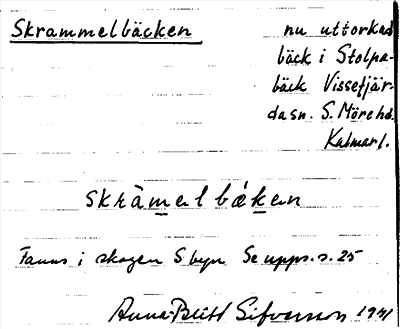 Skrammelbäcken
nu uttorkad
bäck i Stolpa-
bäck Vissefjär-
da sn. S. Möre hd.
Kalmar l.
skrämel bäken
Fanns i skogen S byn Se upps. s. 25
Anna-Britt Sifversson 1941